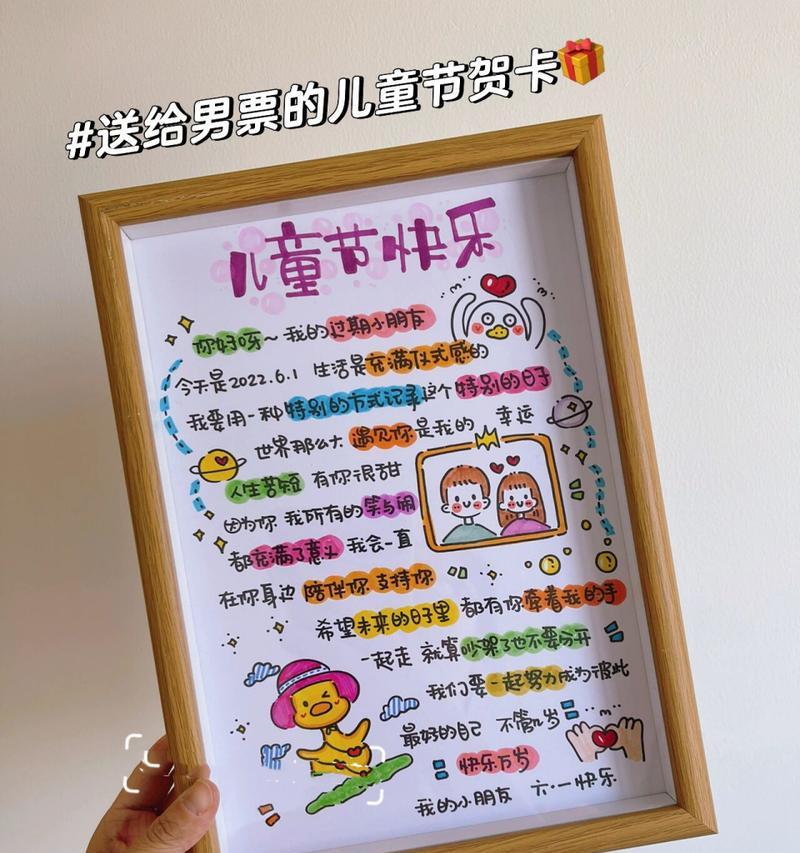 #送给男票的儿童节贺卡
儿童节快乐
你好呀~我的过期小朋友
今天是2022.6.1 生活是充满仪式感的
我要用一种特别的方式记录这个特别的日子
世界那么大 遇见你是我的 幸运
人生苦短 有你很甜
因为你 我所有的笑与闹
都充满了意义 我会一直
在你身边 陪伴你 支持你
希望未来的日子里 都有你牵着我的手
一起走 就算吵架了也不要分开
我们要一起努力成为彼此
最好的自己 不管几岁
快乐万岁
我的小朋友 六·一快乐